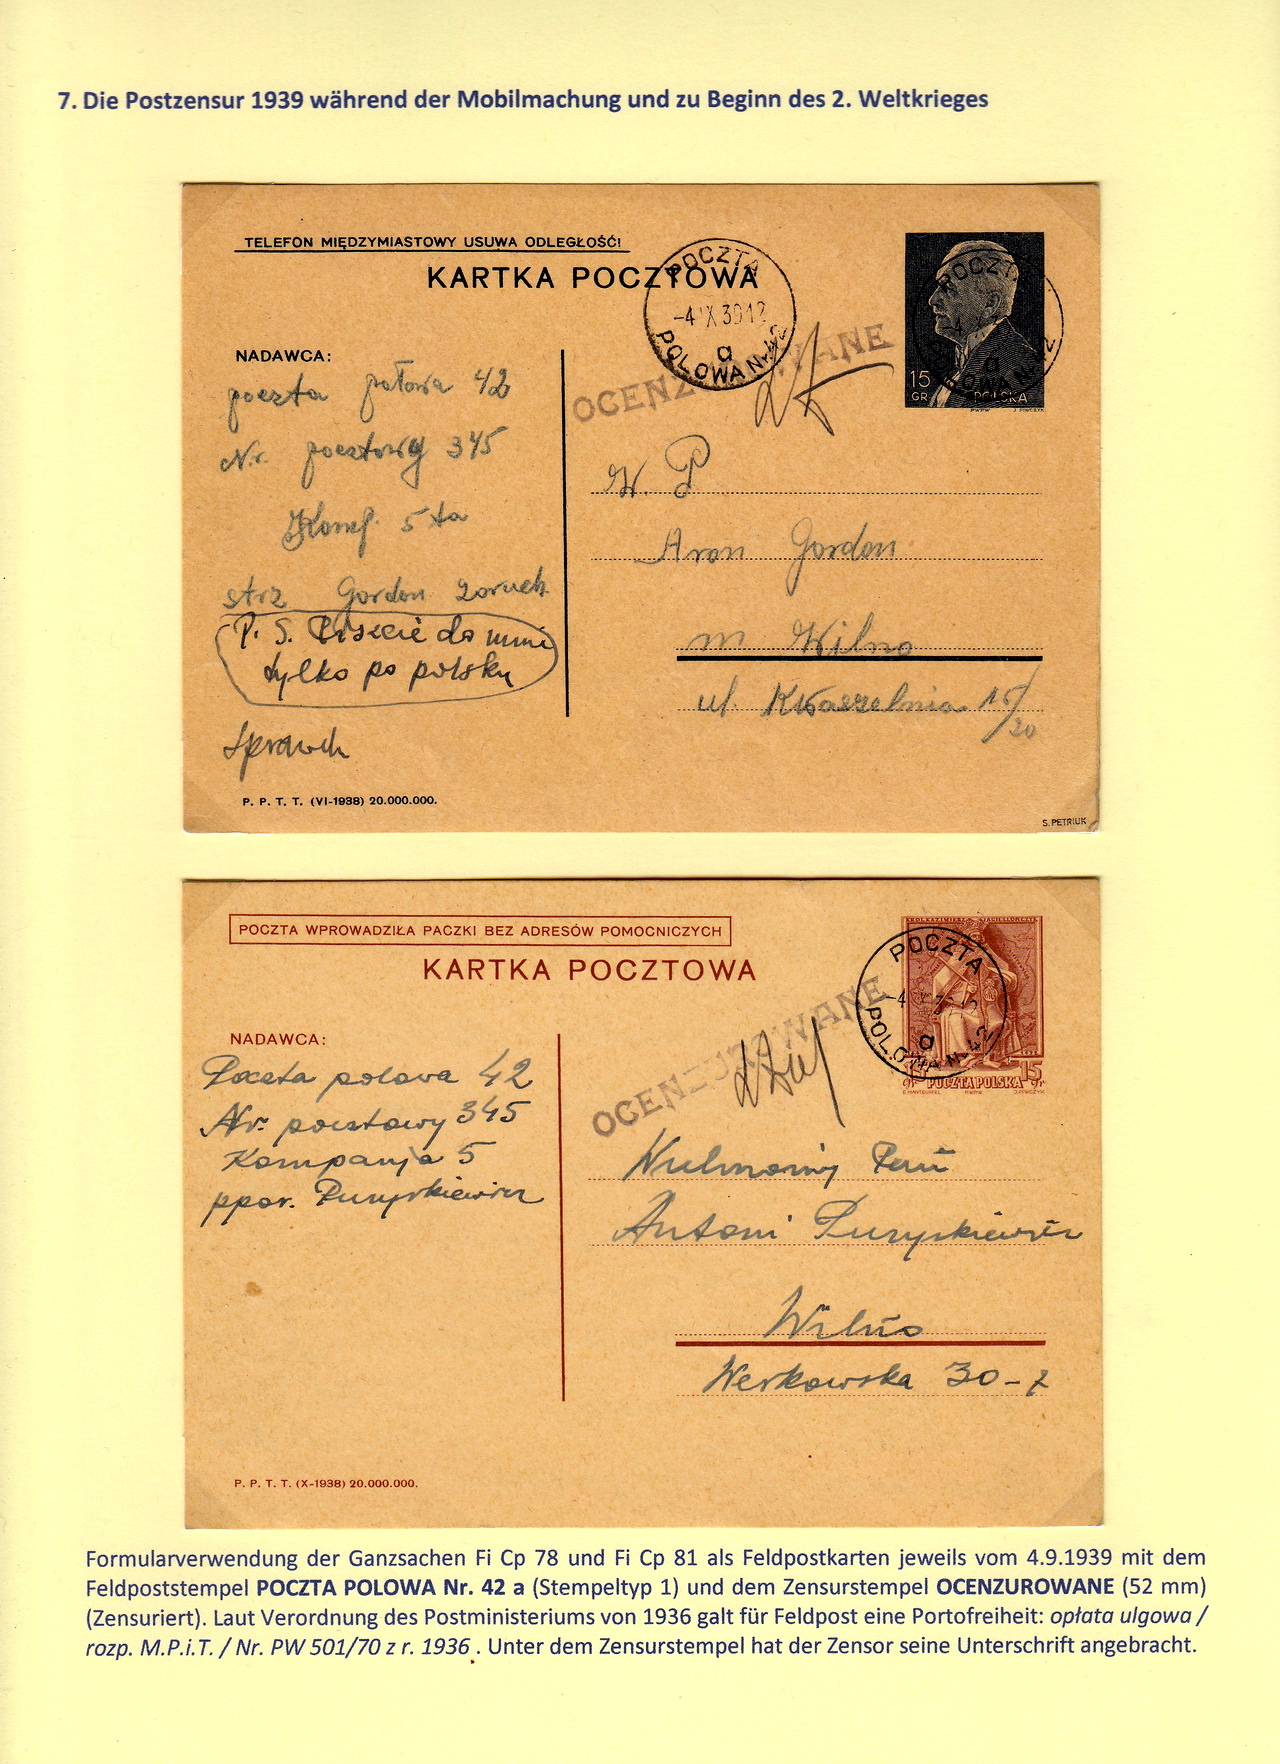 7. Die Postzensur 1939 während der Mobilmachung und zu Beginn des 2. Weltkrieges
TELEFON MIĘDZYMIASTOWY USUWA ODLEGŁOŚĆ!
KARTKA POCZTOWA
POCZTA
-4 IX 39 12
a
POLOWA Nr. 42
POCZTA
a
POLOWA Nr. 42
15
GR.
POLSKA
PWPW J. PIWCZYK
OCENZUROWANE
NADAWCA:
poczta polowa 42
Nr. pocztowy 345
Komp. 5 ta
strz Gordon
P. S. Piszcie do mnie
tylko po polsku
W. P
Aron Gordon
m Wilno
ul. Kwaszelnia 15/20
P. P. T. T. (VI-1938) 20.000.000.
S. PETRIUK
POCZTA WPROWADZIŁA PACZKI BEZ ADRESÓW POMOCNICZYCH
KARTKA POCZTOWA
KRÓL KAZIMIERZ JAGIELLOŃCZYK
POCZTA
a
POLOWA Nr. 42
15 gr POCZTA POLSKA 15 gr
PWPW J. PIWCZYK
OCENZUROWANE
NADAWCA:
Poczta polowa 42
Nr. pocztowy 345
Kompanja 5
ppor. Puzyrkiewicz
Wielmożny Pan
Antoni Puzyrkiewicz
Wilno
Werkowska 30-7
P. P. T. T. (X-1938) 20.000.000.
Formularverwendung der Ganzsachen Fi Cp 78 und Fi Cp 81 als Feldpostkarten jeweils vom 4.9.1939 mit dem
Feldpoststempel POCZTA POLOWA Nr. 42 a (Stempeltyp 1) und dem Zensurstempel OCENZUROWANE (52 mm)
(Zensuriert). Laut Verordnung des Postministeriums von 1936 galt für Feldpost eine Portofreiheit: opłata ulgowa /
rozp. M.P.i.T. / Nr. PW 501/70 z r. 1936 . Unter dem Zensurstempel hat der Zensor seine Unterschrift angebracht.